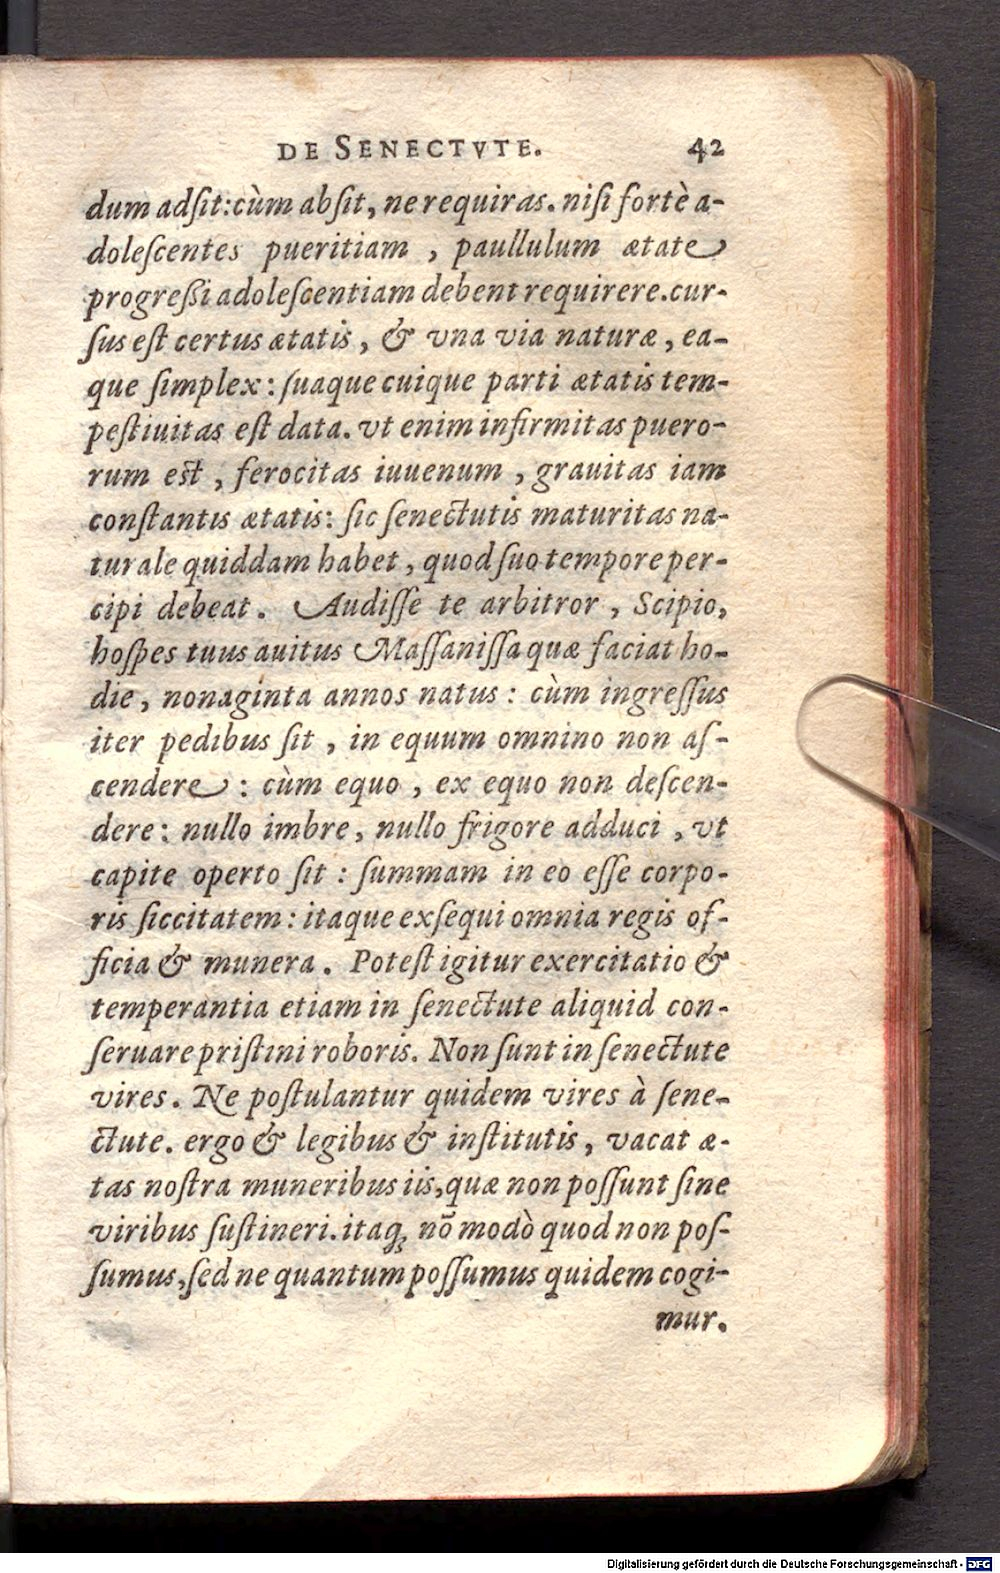 DE SENECTVTE. 42
dum adſit: cùm abſit, ne requiras. niſi fortè a-
doleſcentes pueritiam, paullulum ætate
progreßi adoleſcentiam debent requirere. cur-
ſus eſt certus ætatis, & vna via naturæ, ea-
que ſimplex: ſuaque cuique parti ætatis tem-
peſtiuitas eſt data. vt enim infirmitas puero-
rum est, ferocitas iuuenum, grauitas iam
conſtantis ætatis: ſic ſenectutis maturitas na-
turale quiddam habet, quod ſuo tempore per-
cipi debeat. Audiſſe te arbitror, Scipio,
hoſpes tuus auitus Maſſaniſſa quæ faciat ho-
die, nonaginta annos natus: cùm ingreſſus
iter pedibus ſit, in equum omnino non aſ-
cendere: cùm equo, ex equo non deſcen-
dere: nullo imbre, nullo frigore adduci, vt
capite operto ſit: ſummam in eo eſſe corpo-
ris ſiccitatem: itaque exſequi omnia regis of-
ficia & munera. Poteſt igitur exercitatio &
temperantia etiam in ſenectute aliquid con-
ſeruare priſtini roboris. Non ſunt in ſenectute
vires. Ne poſtulantur quidem vires à ſene-
ctute. ergo & legibus & inſtitutis, vacat æ-
tas noſtra muneribus iis, quæ non poſſunt ſine
viribus ſuſtineri. itaq; nō modò quod non poſ-
ſumus, ſed ne quantum poſſumus quidem cogi-
mur.
Digitalisierung gefördert durch die Deutsche Forschungsgemeinschaft - DFG